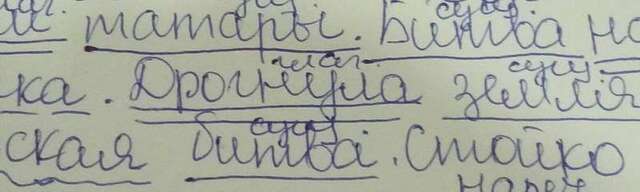 татары. Битва
сущ
глаг. сущ
ка. Дрогнула земля
сущ
ская битва. Стойко
нареч